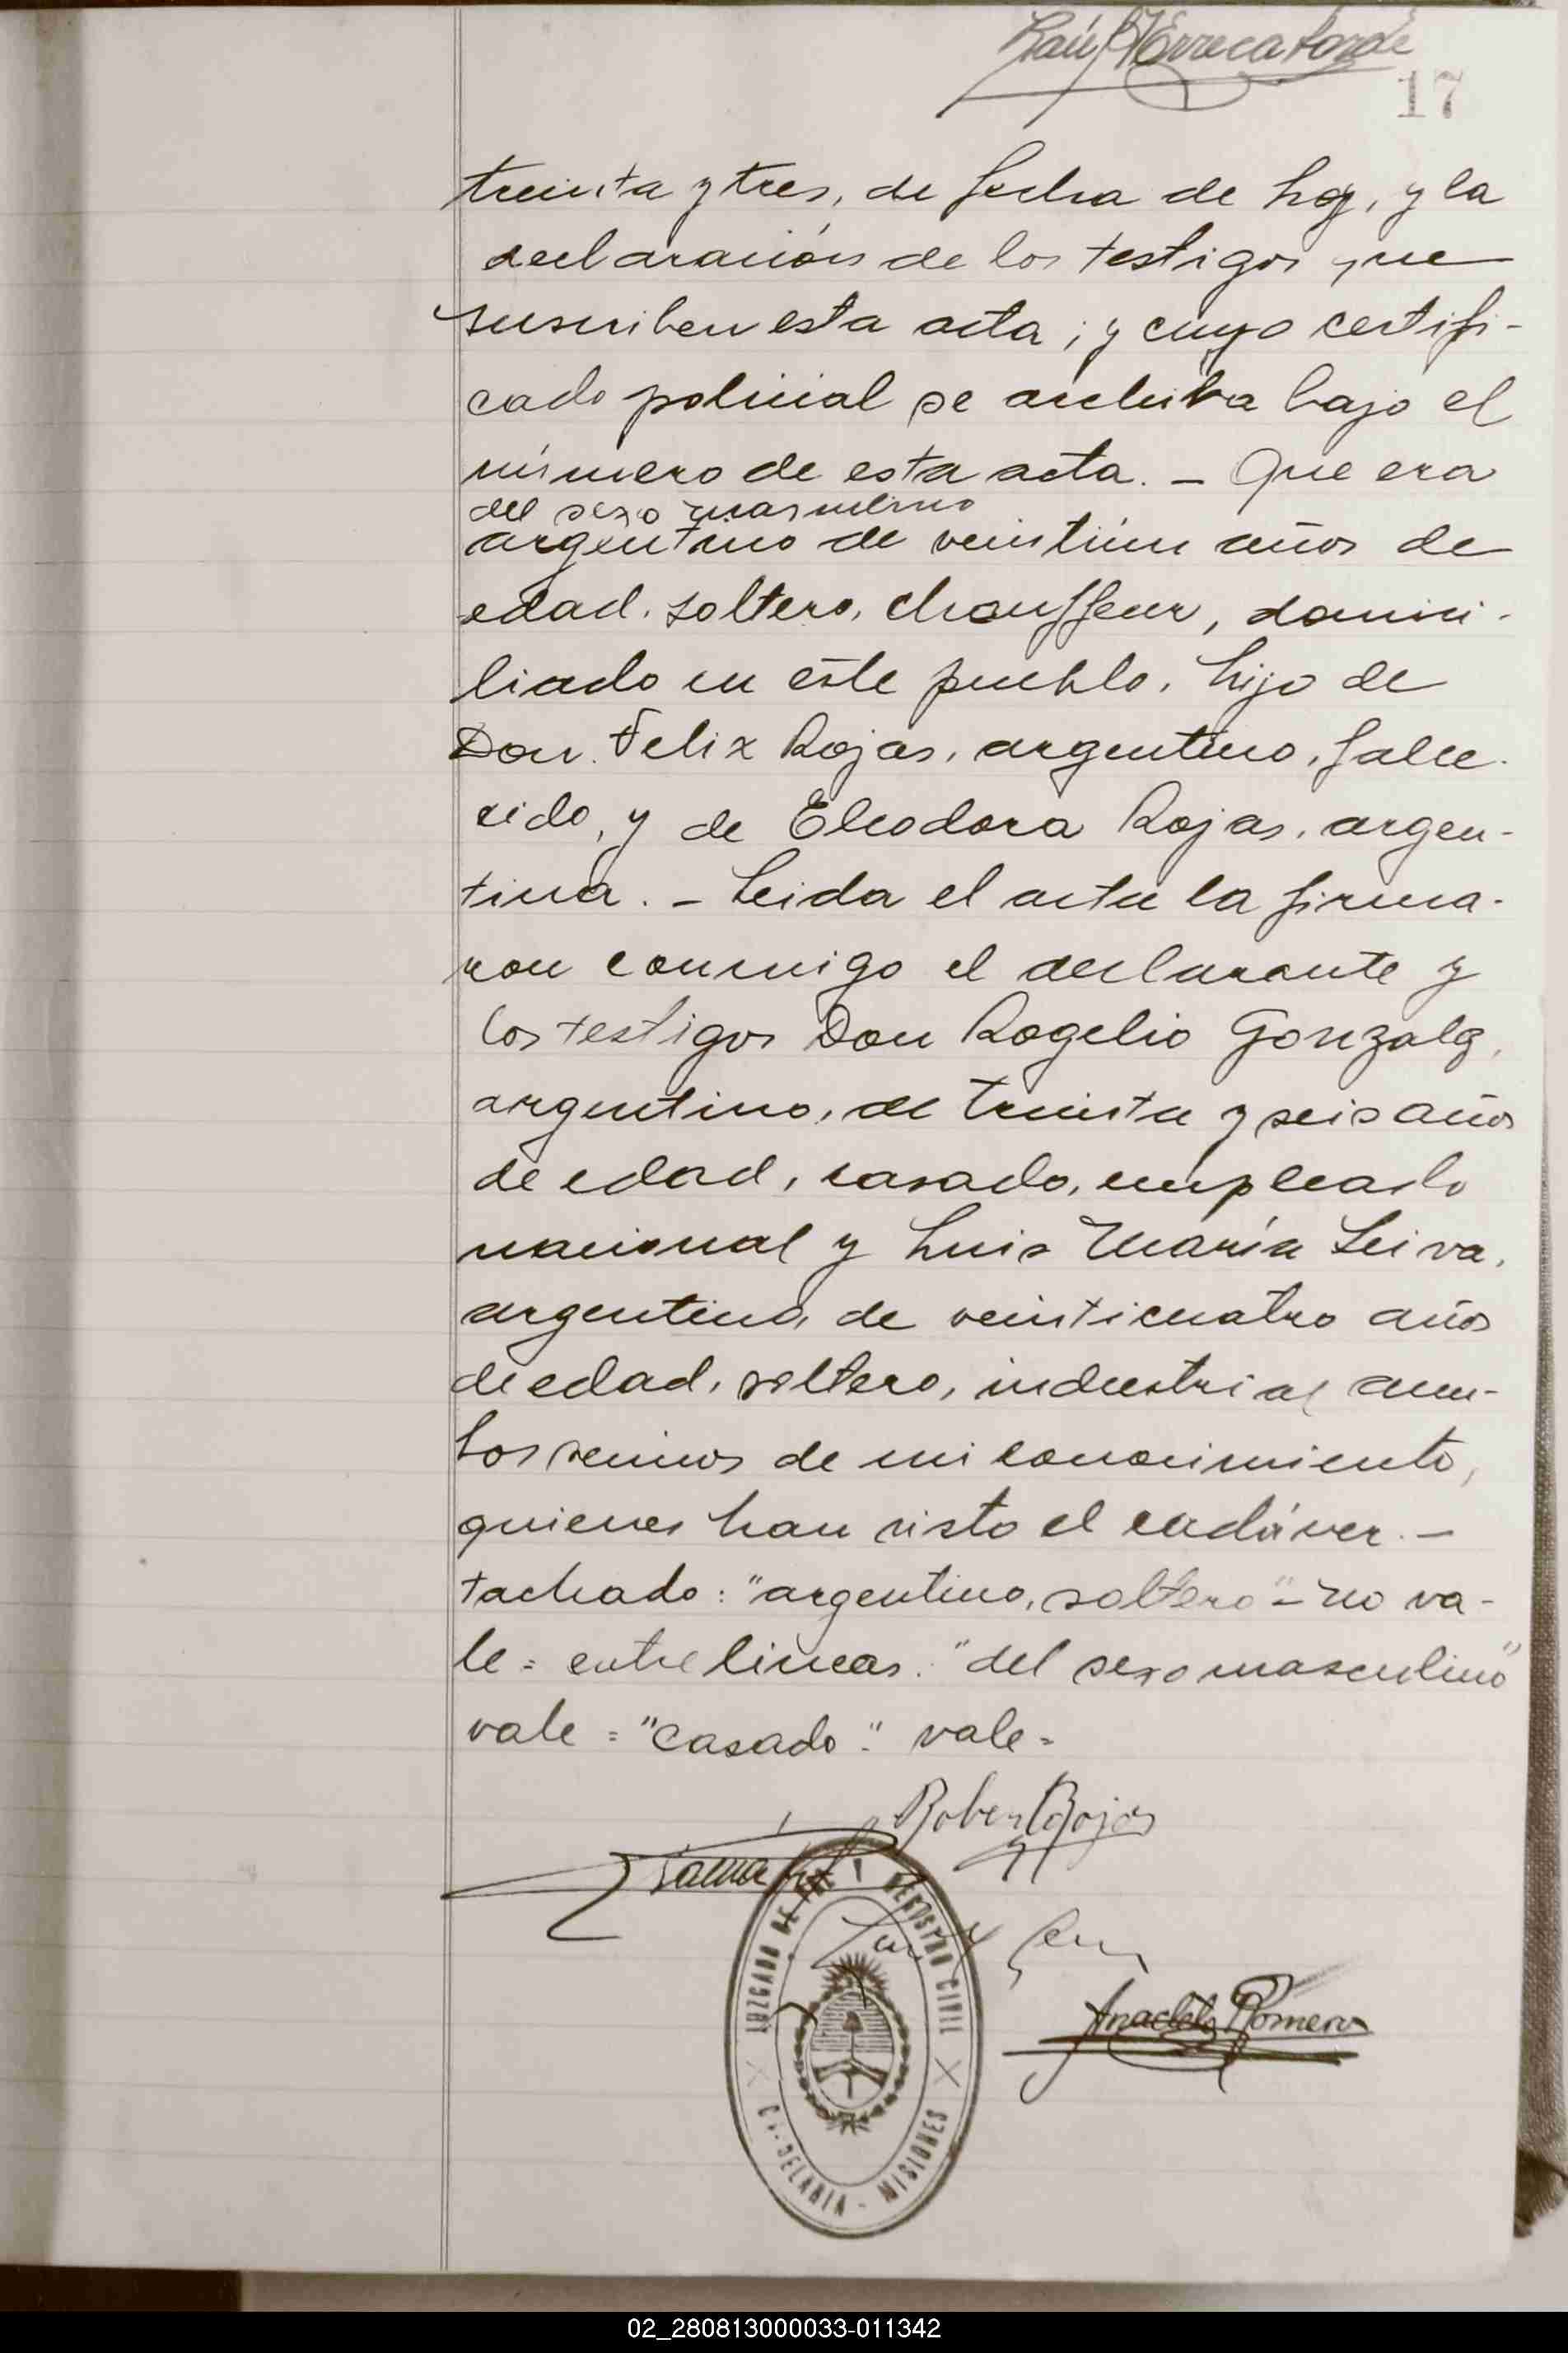 Raúl
17
treinta y tres, de fecha de hoy, y la
declaración de los testigos que
suscriben esta acta; y cuyo certifi-
cado policial se archiva bajo el
número de esta acta. - Que era
del sexo masculino
argentino de veintiún años de
edad, soltero, chauffeur, domici-
liado en este pueblo, hijo de
Don Felix Rojas, argentino, falle-
cido, y de Eleodora Rojas, argen-
tina. - Leida el acta la firma-
ron conmigo el declarante y
los testigos Don Rogelio Gonzalez,
argentino, de treinta y seis años
de edad, casado, empleado
nacional y Luis María Leiva,
argentino, de veinticuatro años
de edad, soltero, industrial am-
bos vecinos de mi conocimiento,
quienes han visto el cadáver. -
tachado: "argentino, soltero" - no va-
le = entre lineas: "del sexo masculino"
vale = "casado": vale =
Rojas
JUZGADO DE PAZ Y REGISTRO CIVIL
CANDELARIA - MISIONES
Anacleto Romero
02_280813000033-011342